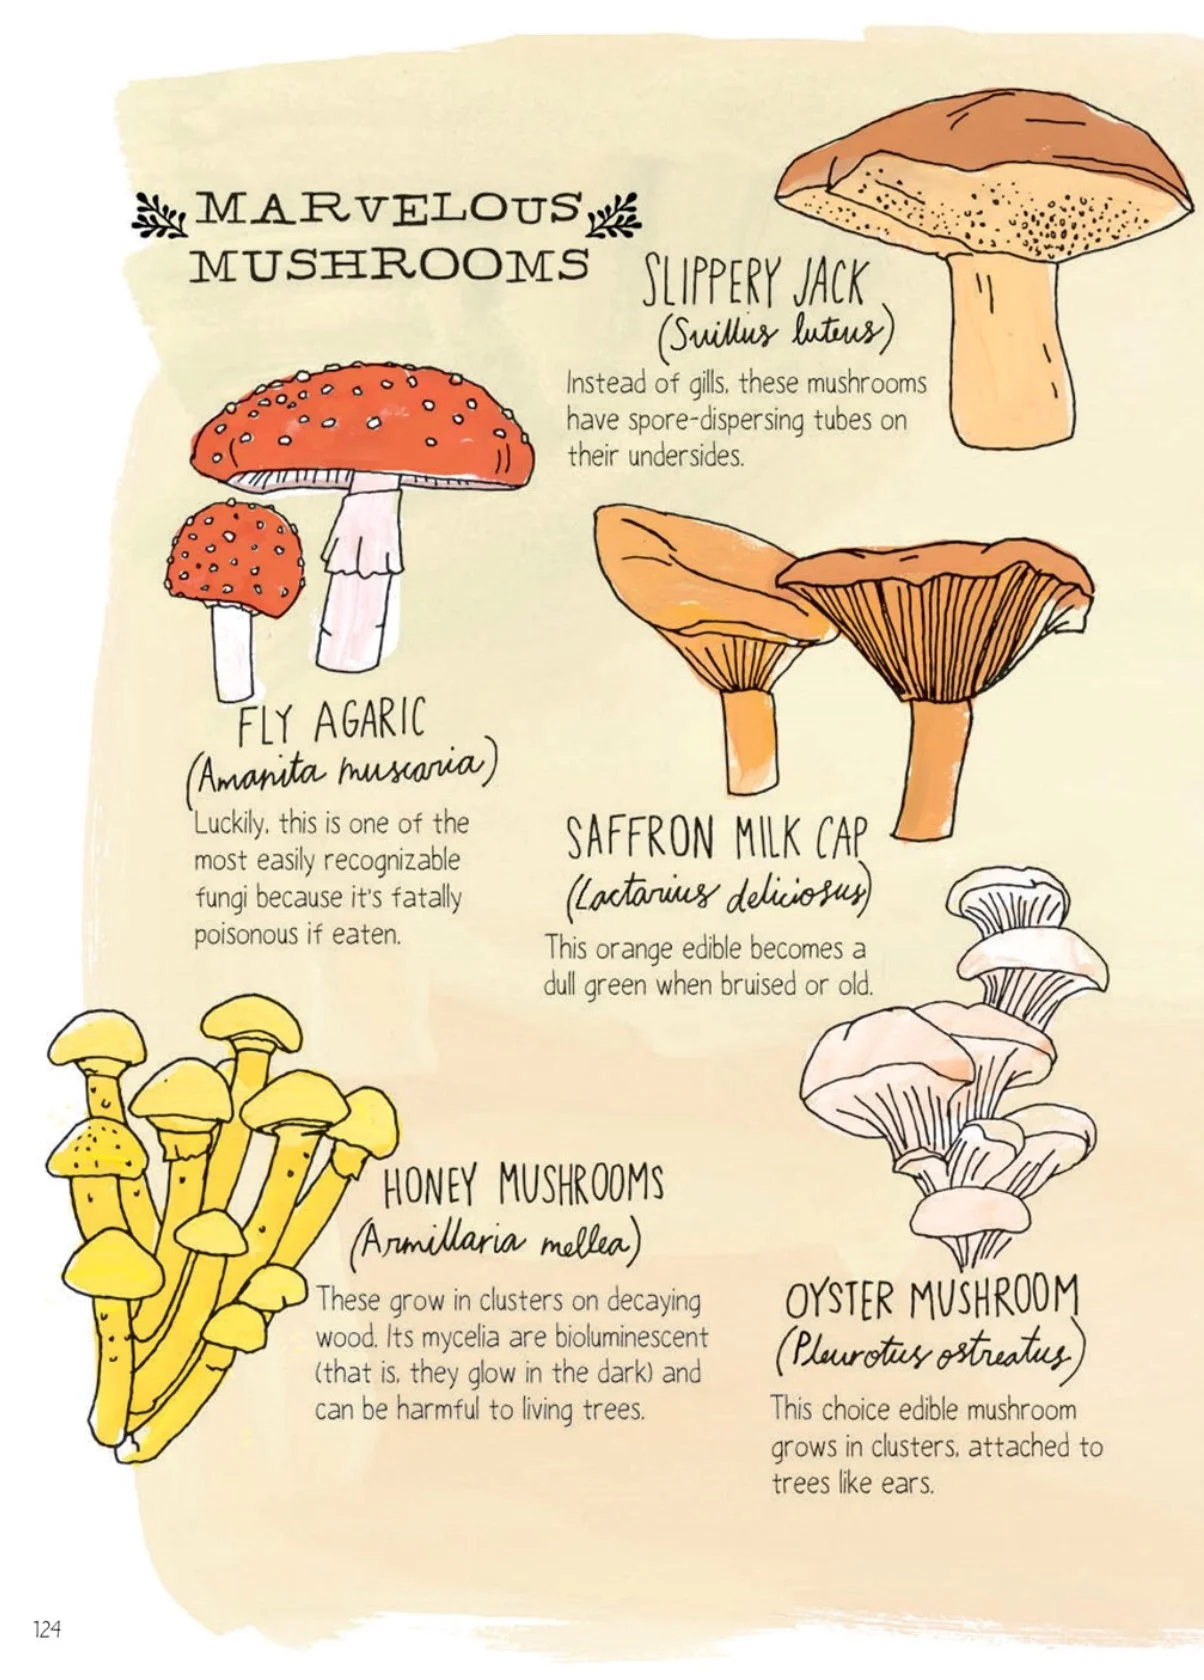 MARVELOUS
MUSHROOMS
SLIPPERY JACK
(Suillus luteus)
Instead of gills, these mushrooms
have spore-dispersing tubes on
their undersides.
FLY AGARIC
(Amanita muscaria)
Luckily, this is one of the
most easily recognizable
fungi because it's fatally
poisonous if eaten.
SAFFRON MILK CAP
(Lactarius deliciosus)
This orange edible becomes a
dull green when bruised or old.
HONEY MUSHROOMS
(Armillaria mellea)
These grow in clusters on decaying
wood. Its mycelia are bioluminescent
(that is, they glow in the dark) and
can be harmful to living trees.
OYSTER MUSHROOM
(Pleurotus ostreatus)
This choice edible mushroom
grows in clusters, attached to
trees like ears.
124